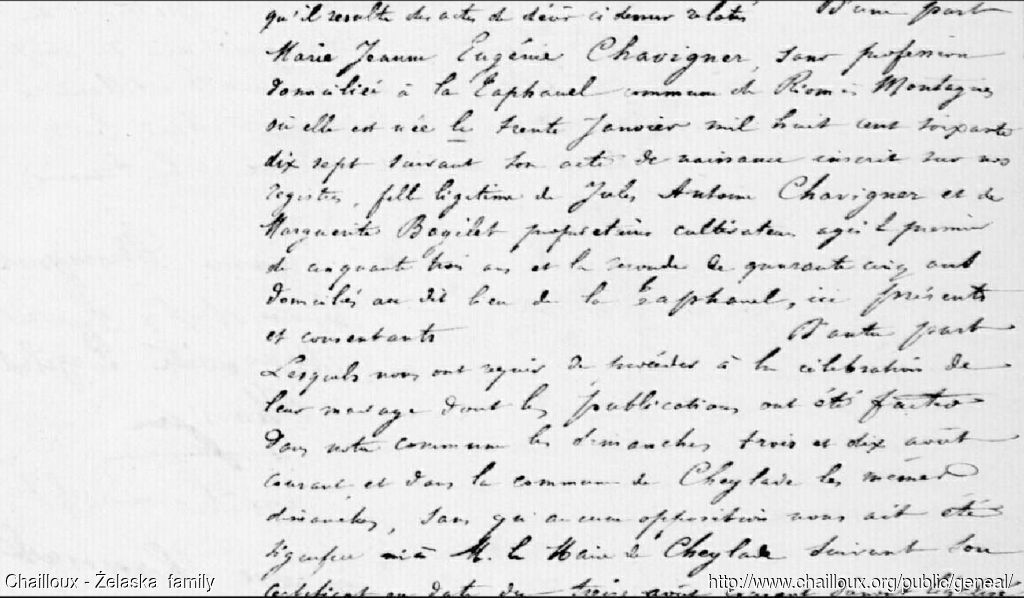 qu'il resulte des actes de décès ci dessus relatés D'une part
Marie Jeanne Eugénie Chavigner, sans profession
domiciliée à la Taphanel commune de Riom ès Montagnes
où elle est née le trente Janvier mil huit cent soixante
dix sept suivant son acte de naissance inscrit sur nos
registres, fille légitime de Jules Antoine Chavigner et de
Marguerite Bagilet propriétaires cultivateurs agés le premier
de cinquante trois ans et la seconde de quarante cinq ans
domiciliés au dit lieu de la Taphanel, ici présents
et consentants D'autre part
Lesquels nous ont requis de procéder à la célébration de
leur mariage dont les publications ont été faites
dans notre commune les dimanches trois et dix août
courant et dans la commune de Cheylade les mêmes
dimanches, sans qu'aucune opposition nous ait été
signifiée ni à M. le Maire de Cheylade suivant son
certificat en date du treize août courant
Chailloux - Żelaska family
http://www.chailloux.org/public/geneal/